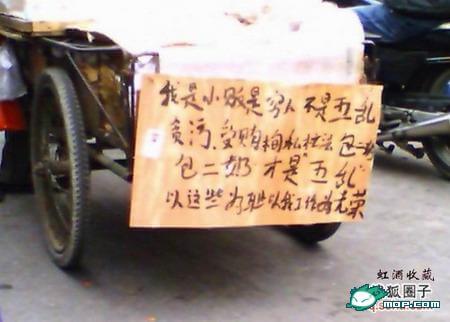 我是小贩是穷人不是五乱
贪污、受购徇私枉法包二奶
包二奶才是"五乱"
以这些为耻以我工作为光荣
虹酒收藏
搜狐圈子
mop.com